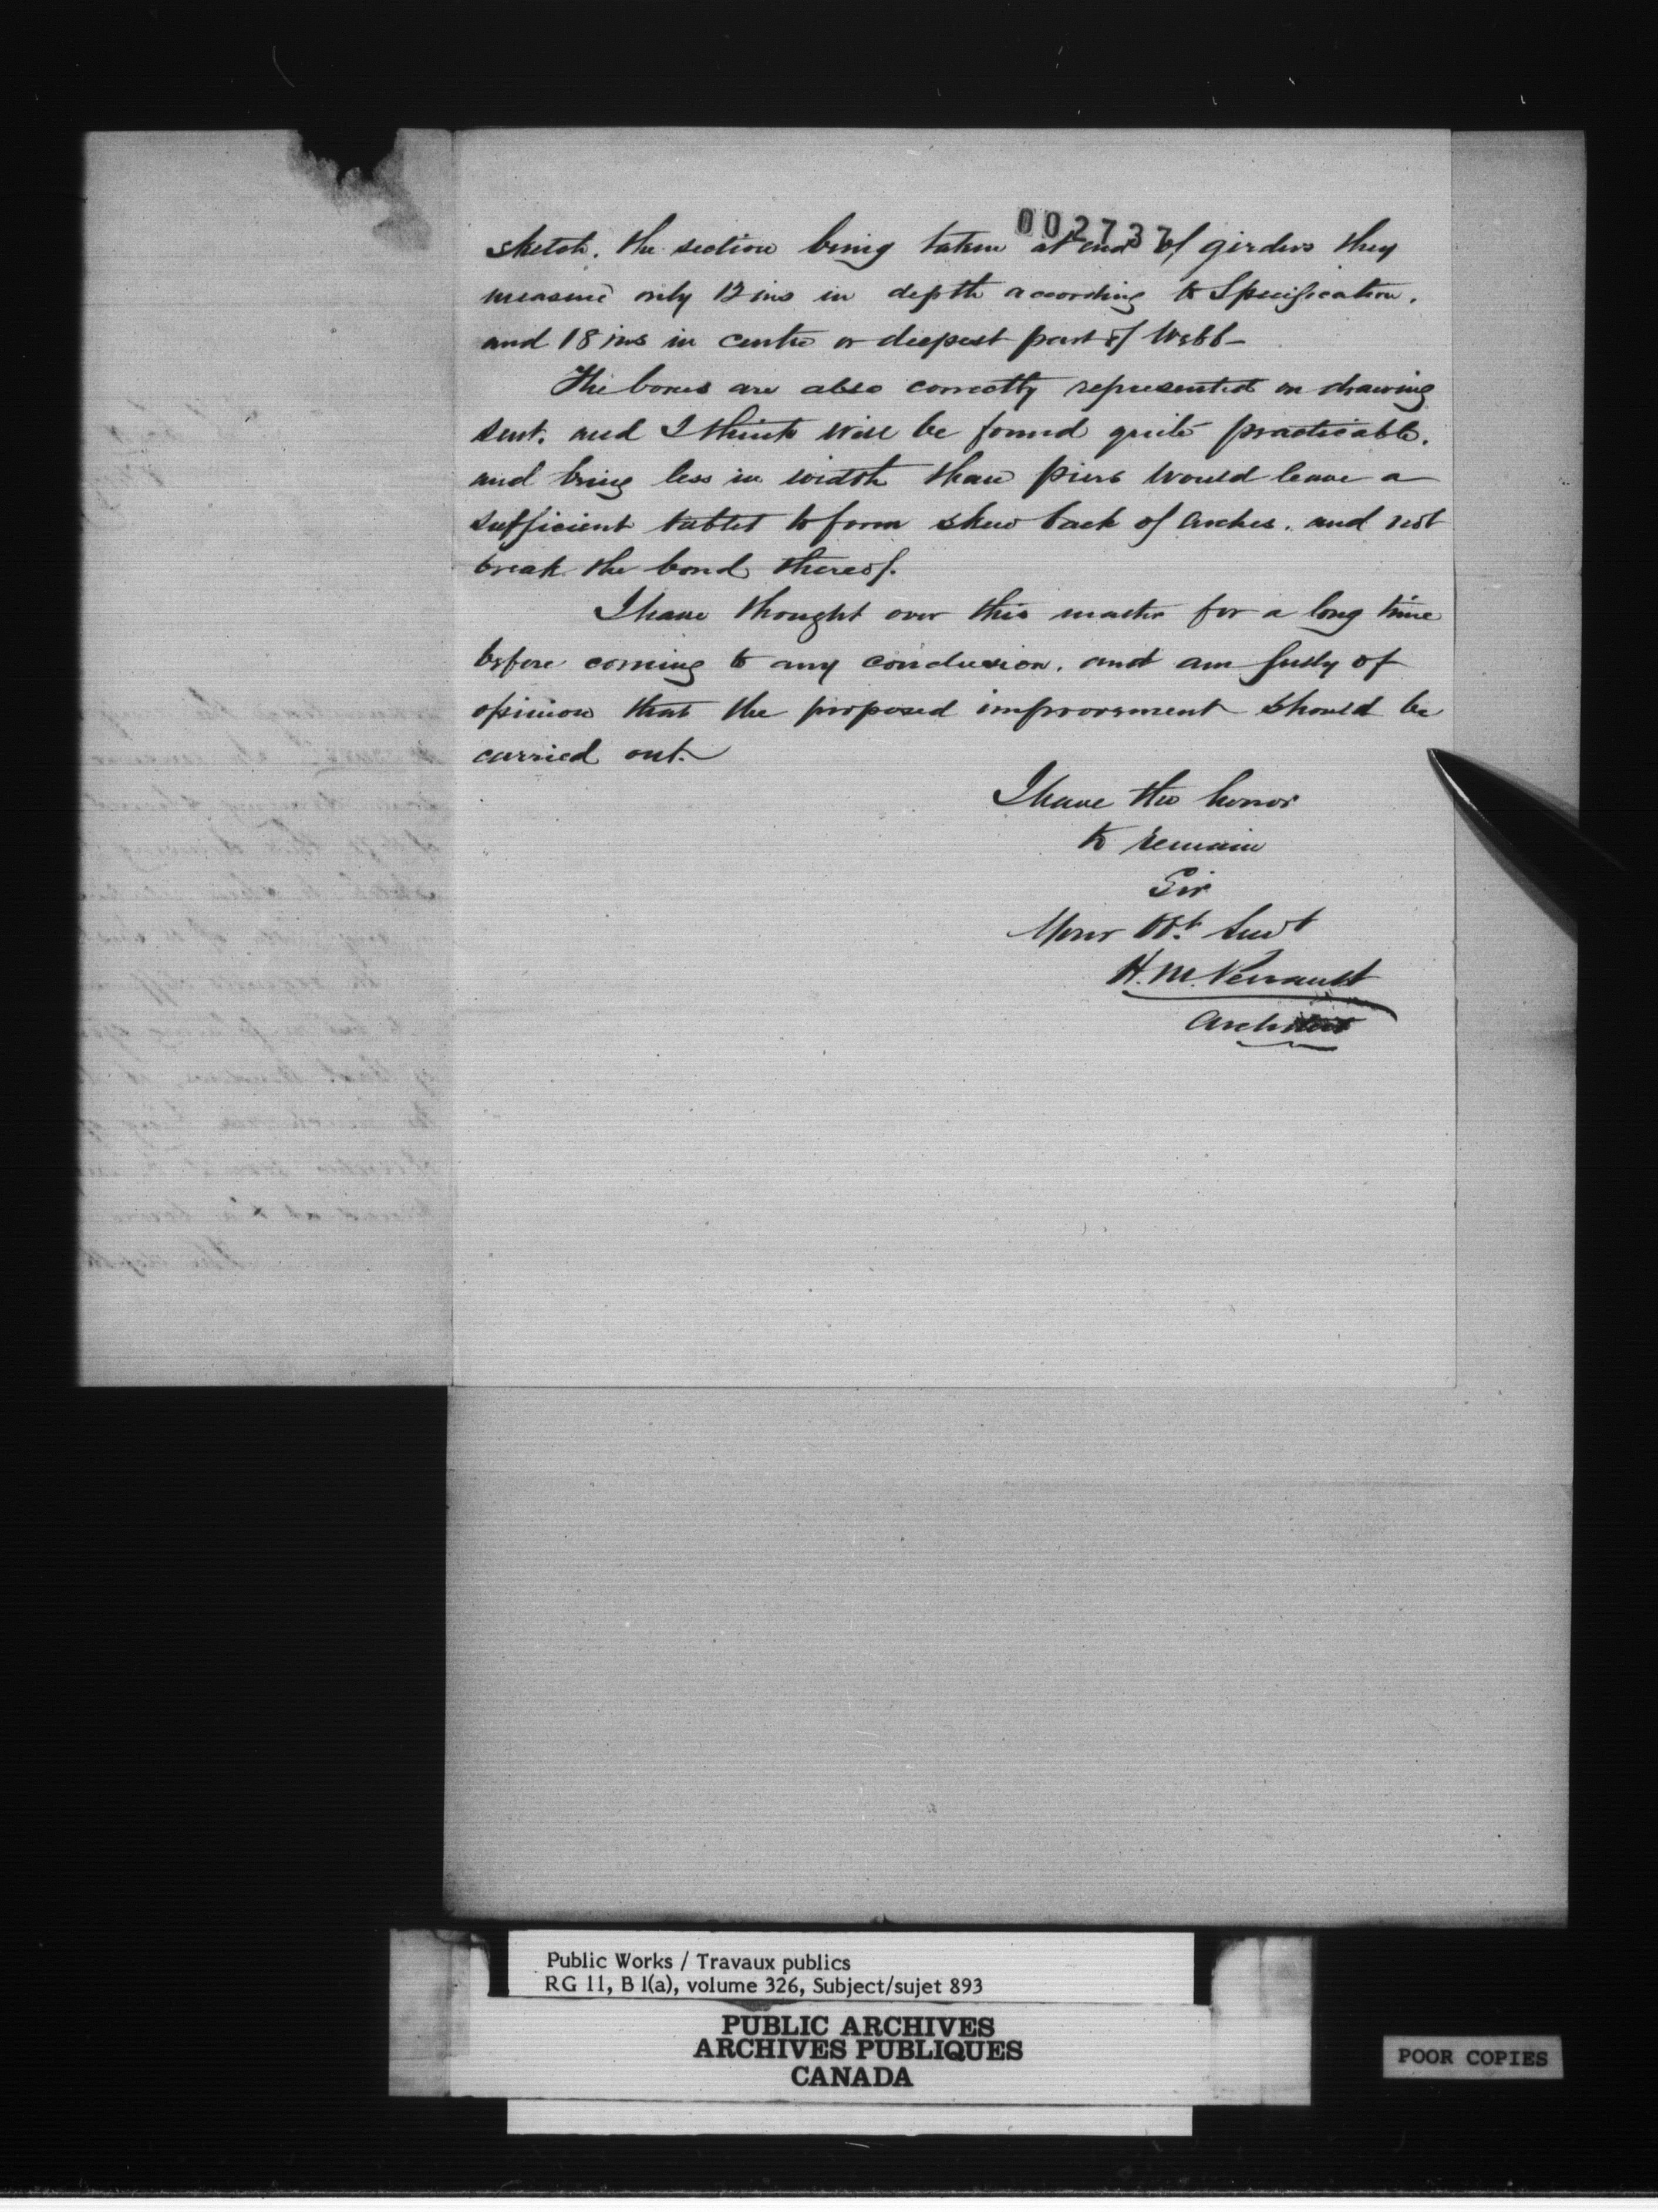 002737
sketch. the section being taken at end of girders they
measure only 12 ins in depth according to Specification.
and 18 ins in centre or deepest part of Webb-
The boxes are also correctly represented on drawing
sent. and I think will be found quite practicable.
and being less in width than piers would leave a
sufficient tablet to form skew back of arches. and not
break the bond thereof.
I have thought over this matter for a long time
before coming to any conclusion. and am fully of
opinion that the proposed improvement should be
carried out.
I have the honor
to remain
Sir
Your Obt Servt
H. M. Perrault
Architect
Public Works / Travaux publics
RG 11, B 1(a), volume 326, Subject/sujet 893
PUBLIC ARCHIVES
ARCHIVES PUBLIQUES
CANADA
POOR COPIES